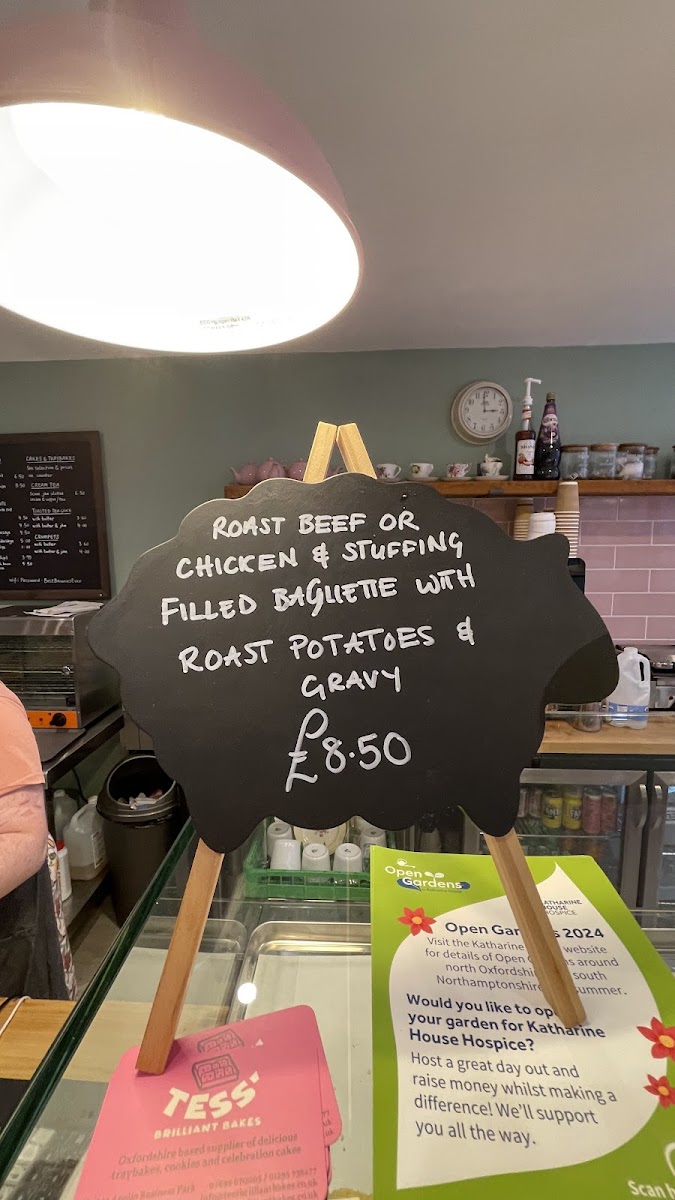 ROAST BEEF OR
CHICKEN & STUFFING
FILLED BAGUETTE WITH
ROAST POTATOES &
GRAVY
£8.50
CAKES & TRAYBAKES
See selection & prices
on counter
CREAM TEA
TOASTED TEACAKE
with butter
with butter & jam
CRUMPETS
with butter
with butter & jam
Open
Gardens
KATHARINE
HOUSE
HOSPICE
Open Gardens 2024
Visit the Katharine website
for details of Open around
north Oxfordshire south
Northamptonshire summer.
Would you like to open
your garden for Katharine
House Hospice?
Host a great day out and
raise money whilst making a
difference! We'll support
you all the way.
Scan
TESS'
BRILLIANT BAKES
Oxfordshire based supplier of delicious
traybakes, cookies and celebration cakes
Business Park